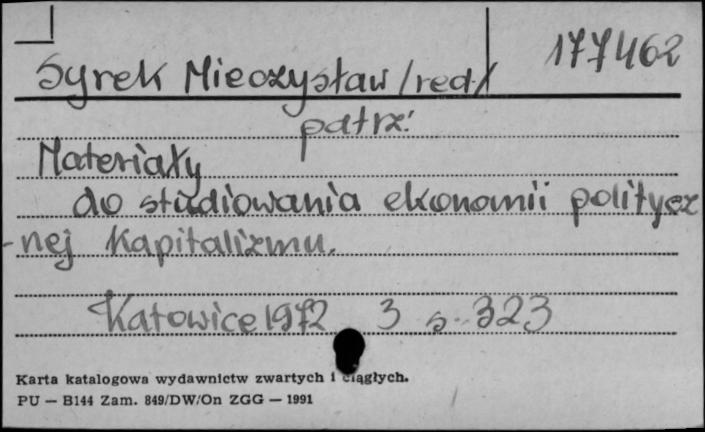 177462
Syrek Mieczysław /red./
patrz:
Materiały
do studiowania ekonomii politycz
-nej kapitalizmu.
Katowice 1972 3 s. 323
Karta katalogowa wydawnictw zwartych i ciągłych.
PU — B144 Zam. 849/DW/On ZGG — 1991